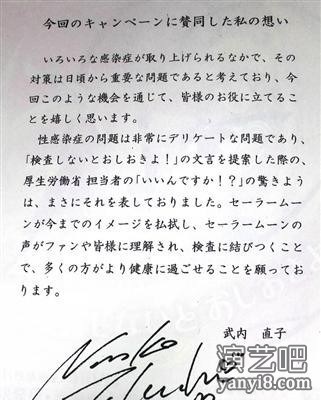 今回のキャンペーンに賛同した私の想い
いろいろな感染症が取り上げられるなかで、その
対策は日頃から重要な問題であると考えており、今
回このような機会を通じて、皆様のお役に立てるこ
とを嬉しく思います。
性感染症の問題は非常にデリケートな問題であり、
「検査しないとおしおきよ！」の文言を提案した際の、
厚生労働省 担当者の「いいんですか！？」の驚きよう
は、まさにそれを表しておりました。セーラームー
ンが今までのイメージを払拭し、セーラームーンの
声がファンや皆様に理解され、検査に結びつくこと
で、多くの方がより健康に過ごせることを願ってお
ります。
武内 直子
Naoko
Takeuchi
演艺吧
yanyi8.com